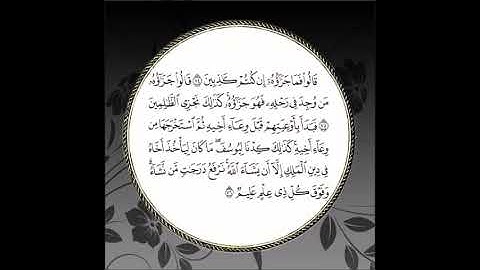 قَالُوا۟ فَمَا جَزَٰٓؤُهُۥٓ إِن كُنتُمْ كَٰذِبِينَ ٧٤ قَالُوا۟ جَزَٰٓؤُهُۥ
مَن وُجِدَ فِى رَحْلِهِۦ فَهُوَ جَزَٰٓؤُهُۥ كَذَٰلِكَ نَجْزِى ٱلظَّٰلِمِينَ
٧٥ فَبَدَأَ بِأَوْعِيَتِهِمْ قَبْلَ وِعَآءِ أَخِيهِ ثُمَّ ٱسْتَخْرَجَهَا مِن
وِعَآءِ أَخِيهِ كَذَٰلِكَ كِدْنَا لِيُوسُفَ مَا كَانَ لِيَأْخُذَ أَخَاهُ
فِى دِينِ ٱلْمَلِكِ إِلَّآ أَن يَشَآءَ ٱللَّهُ نَرْفَعُ دَرَجَٰتٍ مَّن نَّشَآءُ
وَفَوْقَ كُلِّ ذِى عِلْمٍ عَلِيمٌ ٧٦